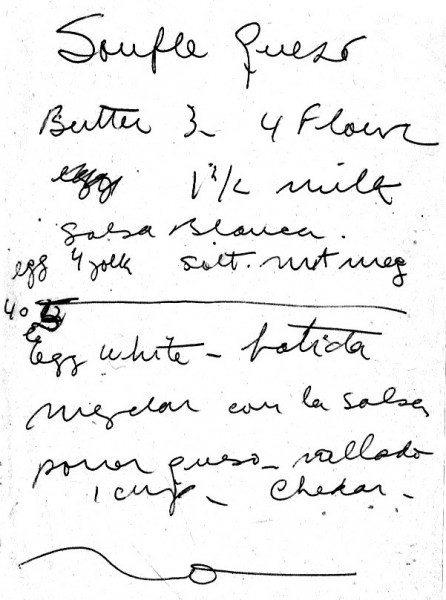 Soufle queso
Butter 3 - 4 Flour
egg 1 1/2 milk
salsa Blanca.
egg 4 yolk salt. nutmeg
40
Egg white - batida
mezclar con la salsa
poner queso - rallado
1 cup - Chekar -